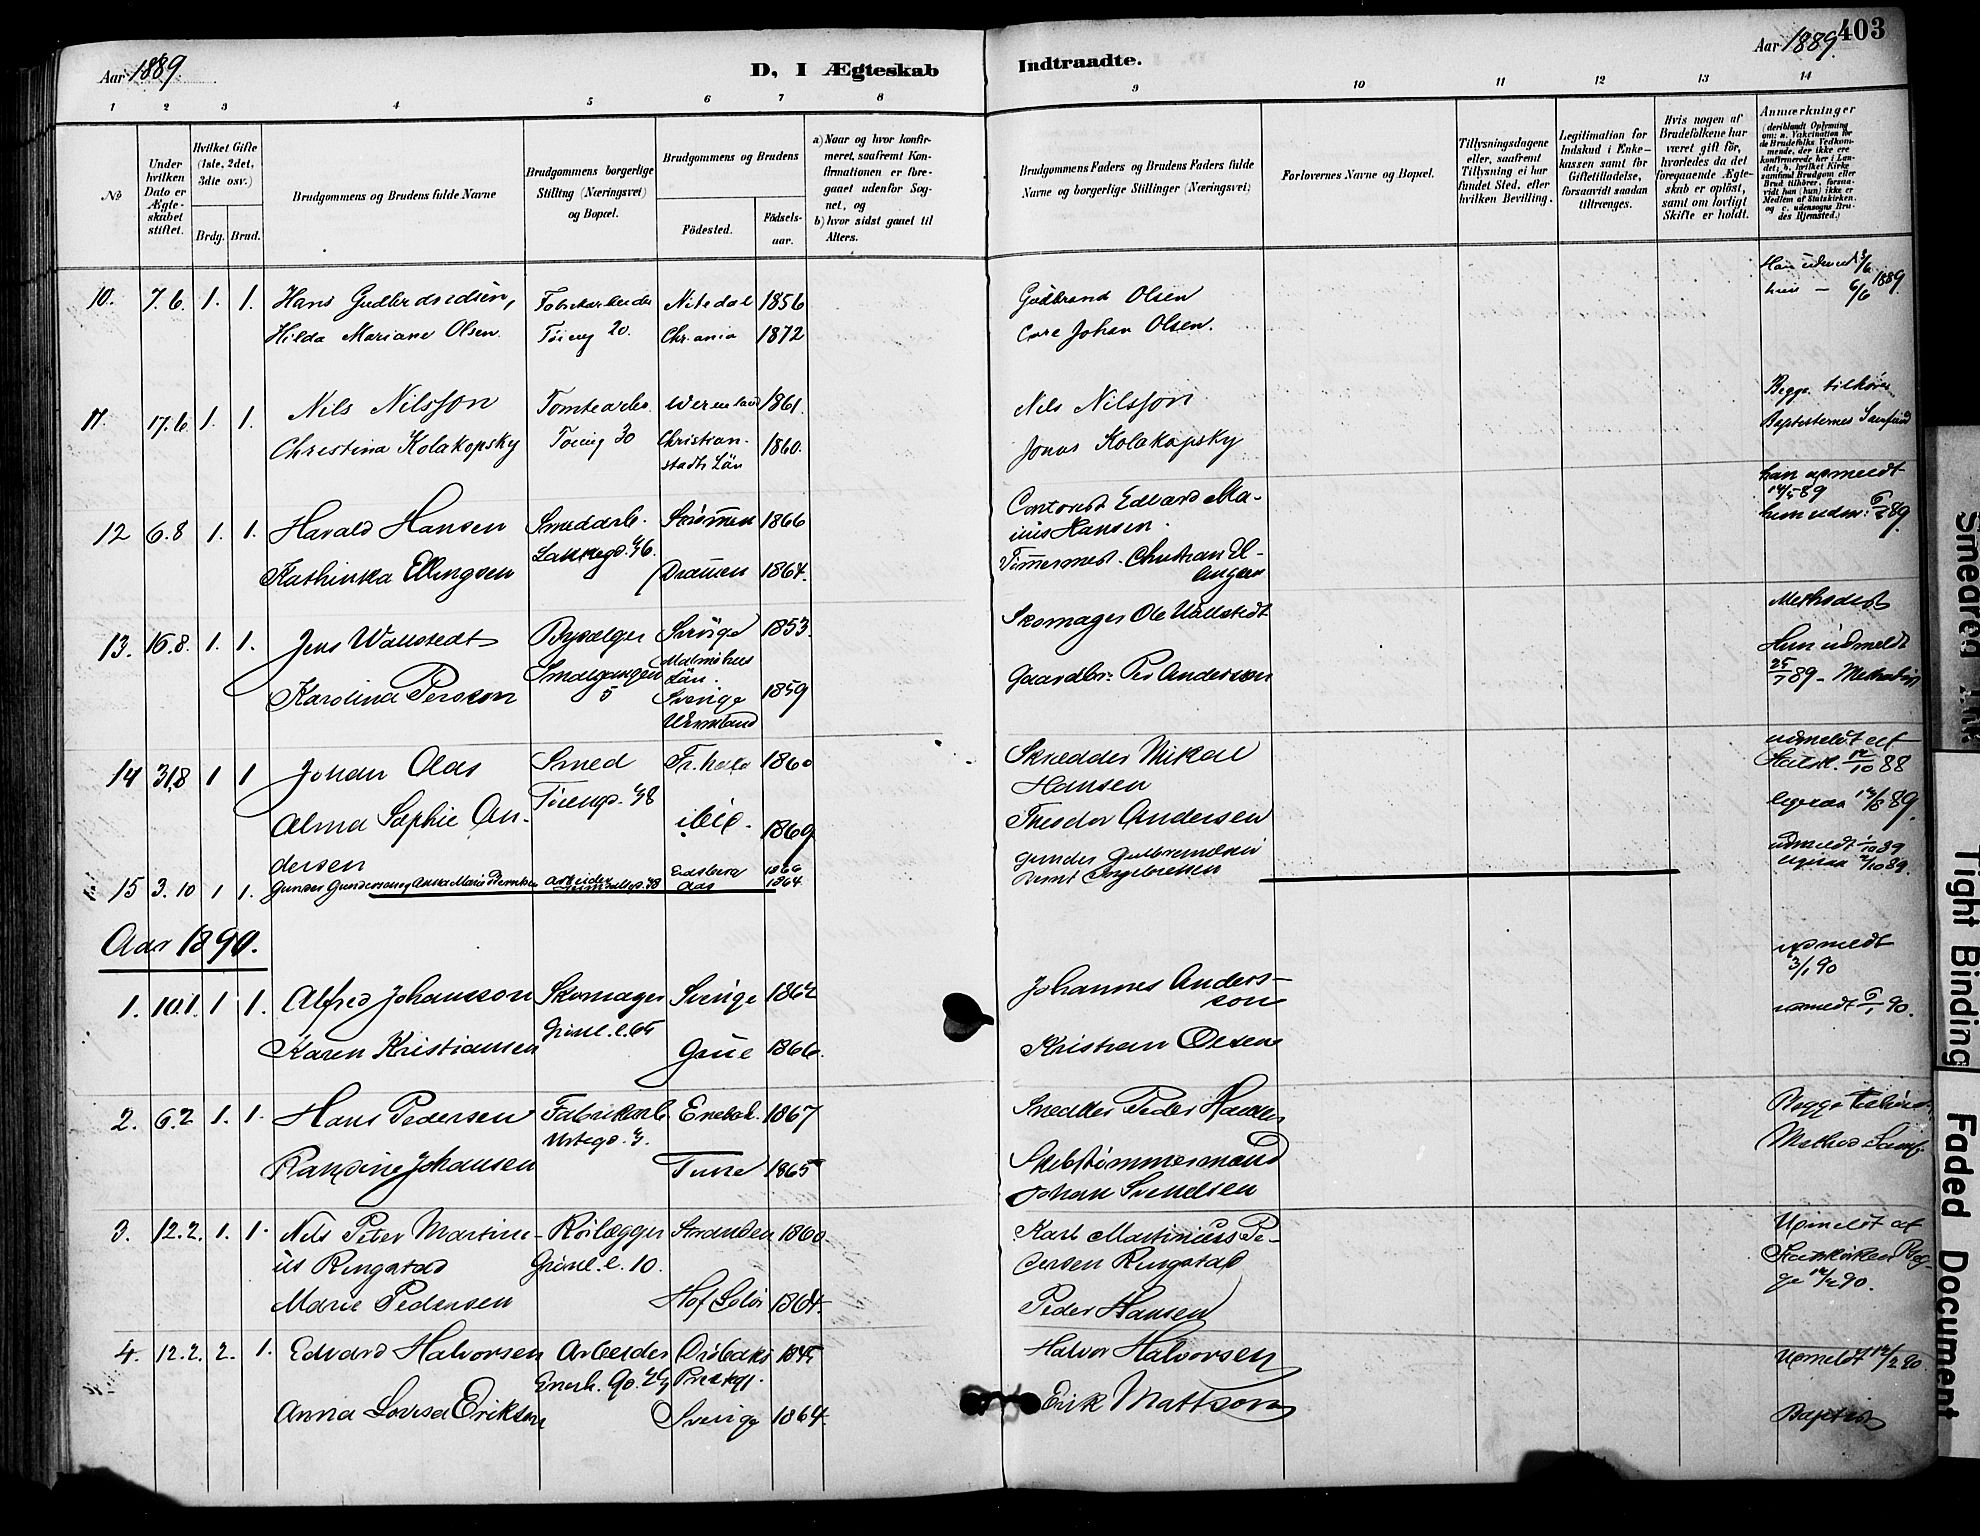 Aar 1889.
D, I Ægteskab
Indtraadte.
Aar 1889. 403
1 2 3 4 5 6 7 8
9 10 11 12 13 14
No
Under hvilken Dato er Ægteskabet stiftet.
Hvilket Gifte (1ste, 2det, 3die osv.)
Brdg. Brud.
Brudgommens og Brudens fulde Navne
Brudgommens borgerlige Stilling (Næringsvei) og Bopæl.
Brudgommens og Brudens
Födested.
Födselsaar.
a) Naar og hvor konfirmeret, saafremt Konfirmationen er foregaaet udenfor Sognet, og
b) hvor sidst gaaet til Alters.
Brudgommens Faders og Brudens Faders fulde Navne og borgerlige Stillinger (Næringsvei)
Forlovernes Navne og Bopæl.
Tillysningsdagene eller, saafremt Tillysning ei har fundet Sted, efter hvilken Bevilling.
Legitimation for Indskud i Enkekassen samt for Giftetilladelse, forsaavidt saadan tiltrænges.
Hvis nogen af Brudefolkene har været gift för, hvorledes da det foregaaende Ægteskab er oplöst, samt om lovligt Skifte er holdt.
Anmærkninger
(deriblandt Oplysning om: a. Vakcination for de Brudefolks Vedkommende, der ikke ere konfirmerede her i Landet; b. hvilket Kirkesamfund Brudgom eller Brud tilhörer, forsaavidt han (hun) ikke er Medlem af Statskirken, og c. udensogns Brudes Hjemsted.)
10. 7.6. 1. 1. Hans Gudbrandsen, Nitedal 1856 Gudbrand Olsen
Hilda Mariane Olsen. Töieng 20. Chr.ania 1872 Johan Olsen. 1889
11. 17.6. 1. 1. Nils Nilsson Tomtearb. Wermland 1861. Nils Nilsson Begge tilhöre
Christina Kolakopsky Töieng 30 Christianstads Län 1860. Jonas Kolakopsky Baptisternes Samfund
12 6.8 1. 1. Harald Hansen Smedarb. Strömmen 1866 Edvard Marius Hansen. han udmeldt 14/5 89
Kathinka Ellingsen Lakkegd. 46. Drammen 1864. Tömmermd. Christian Ellingsen hun udm. 89.
13. 16.8. 1. 1. Jens Wallstedt Bysælger Sverige Malmöhus Län. 1853. Skomager Ole Wallstedt Methodist
Karolina Persson Smalgangen 5 Sverige Wermland 1859 Gaardbr. Per Anderson Hun udmeldt 25/7 89 - Methodist
14 31.8 1 1 Johan Aas Smed Fr.hald 1860 Skrædder Mikal Hansen udmeldt af Statsk. 12/10 88
Alma Sophie Andersen Töiengd. 48 ibid. 1869 Theodor Andersen ligesaa 89.
15 3.10 1 1. Gunder Gundersen og Anna Marie Berntsen Arbeider Eidsberg Aas 1866 1864 Gunder Gulbrandsen Bernt Ingebretsen udmeldt 89 ligesaa 89.
Aar 1890.
1. 10.1. 1 1. Alfred Johansson Skomager Sverige 1862 Johannes Andersson udmeldt 3/1 90
Karen Kristiansen Grönl. l. 65 Grue 1866. Kristian Olsen udmeldt 90.
2. 6.2 1. 1. Hans Pedersen Fabrikarb. Enebak. 1867 Snedker Peder Hansen Begge tilhöre
Randine Johansen Urtegd. Tune 1865 Skibstömmermand Johan Svendsen Method. Samf.
3. 12.2. 1. 1. Nils Peter Martinius Ringstad Rörlægger Stranden 1860. Karl Martinius Pedersen Ringstad Udmeldt af Statskirken Begge 12/2 90.
Marie Pedersen Grönl. l. 10. Hof Solör 1864. Peder Hansen
4. 12.2. 2. 1. Edvard Halvorsen Arbeider Dröbaks Præstegj. 1845 Halvor Halvorsen Udmeldt 12/2 90
Anna Lovisa Erikson Enerh. 90. Sverige 1864. Erik Mattson Baptist
Smeared Ink
Tight Binding
Faded Document